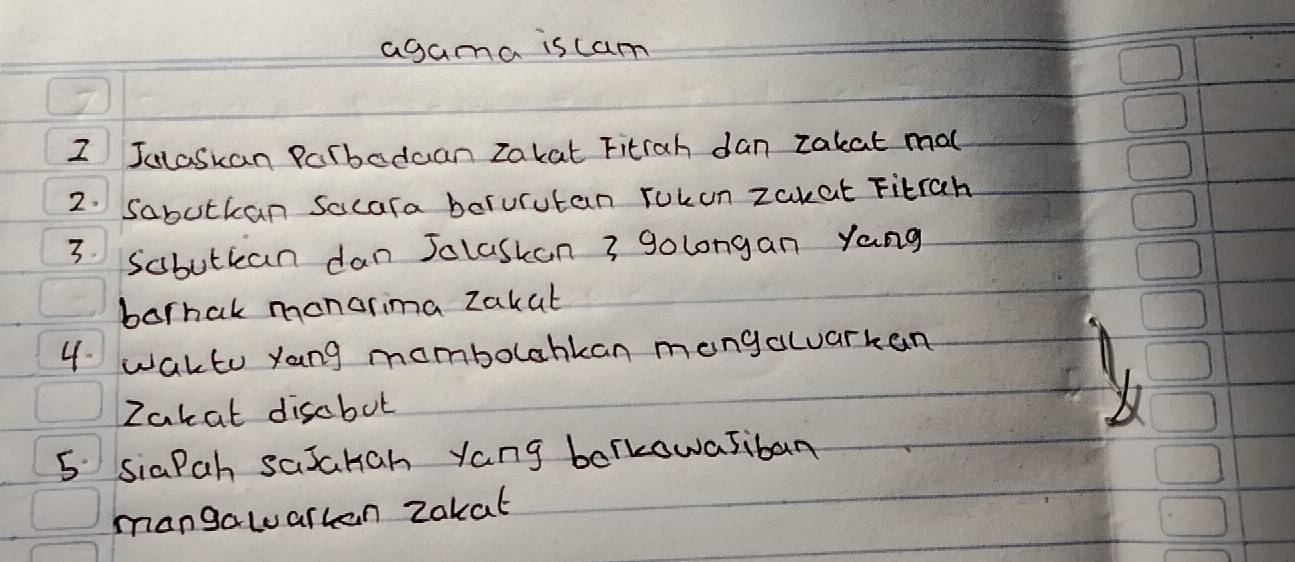 agama islam
1 Jelaskan Perbedaan zakat Fitrah dan zakat mal
2. Sebutkan Secara berurutan rukun zakat Fitrah
3. Sebutkan dan Jelaskan 3 golongan yang
berhak menerima zakat
4. waktu yang membolehkan mengeluarkan
Zakat disebut
5. siapah sajakah yang berkewajiban
mengeluarkan zakat